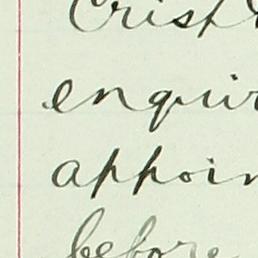 Crisp
enquir
appoin
before